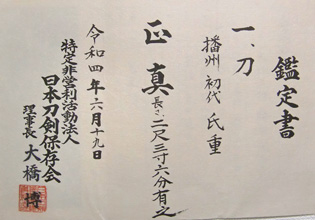 鑑定書
一、刀
播州 初代 氏重
正真 長さ二尺三寸六分有之
令和四年六月十九日
特定非営利活動法人
日本刀剣保存会
理事長 大橋 博